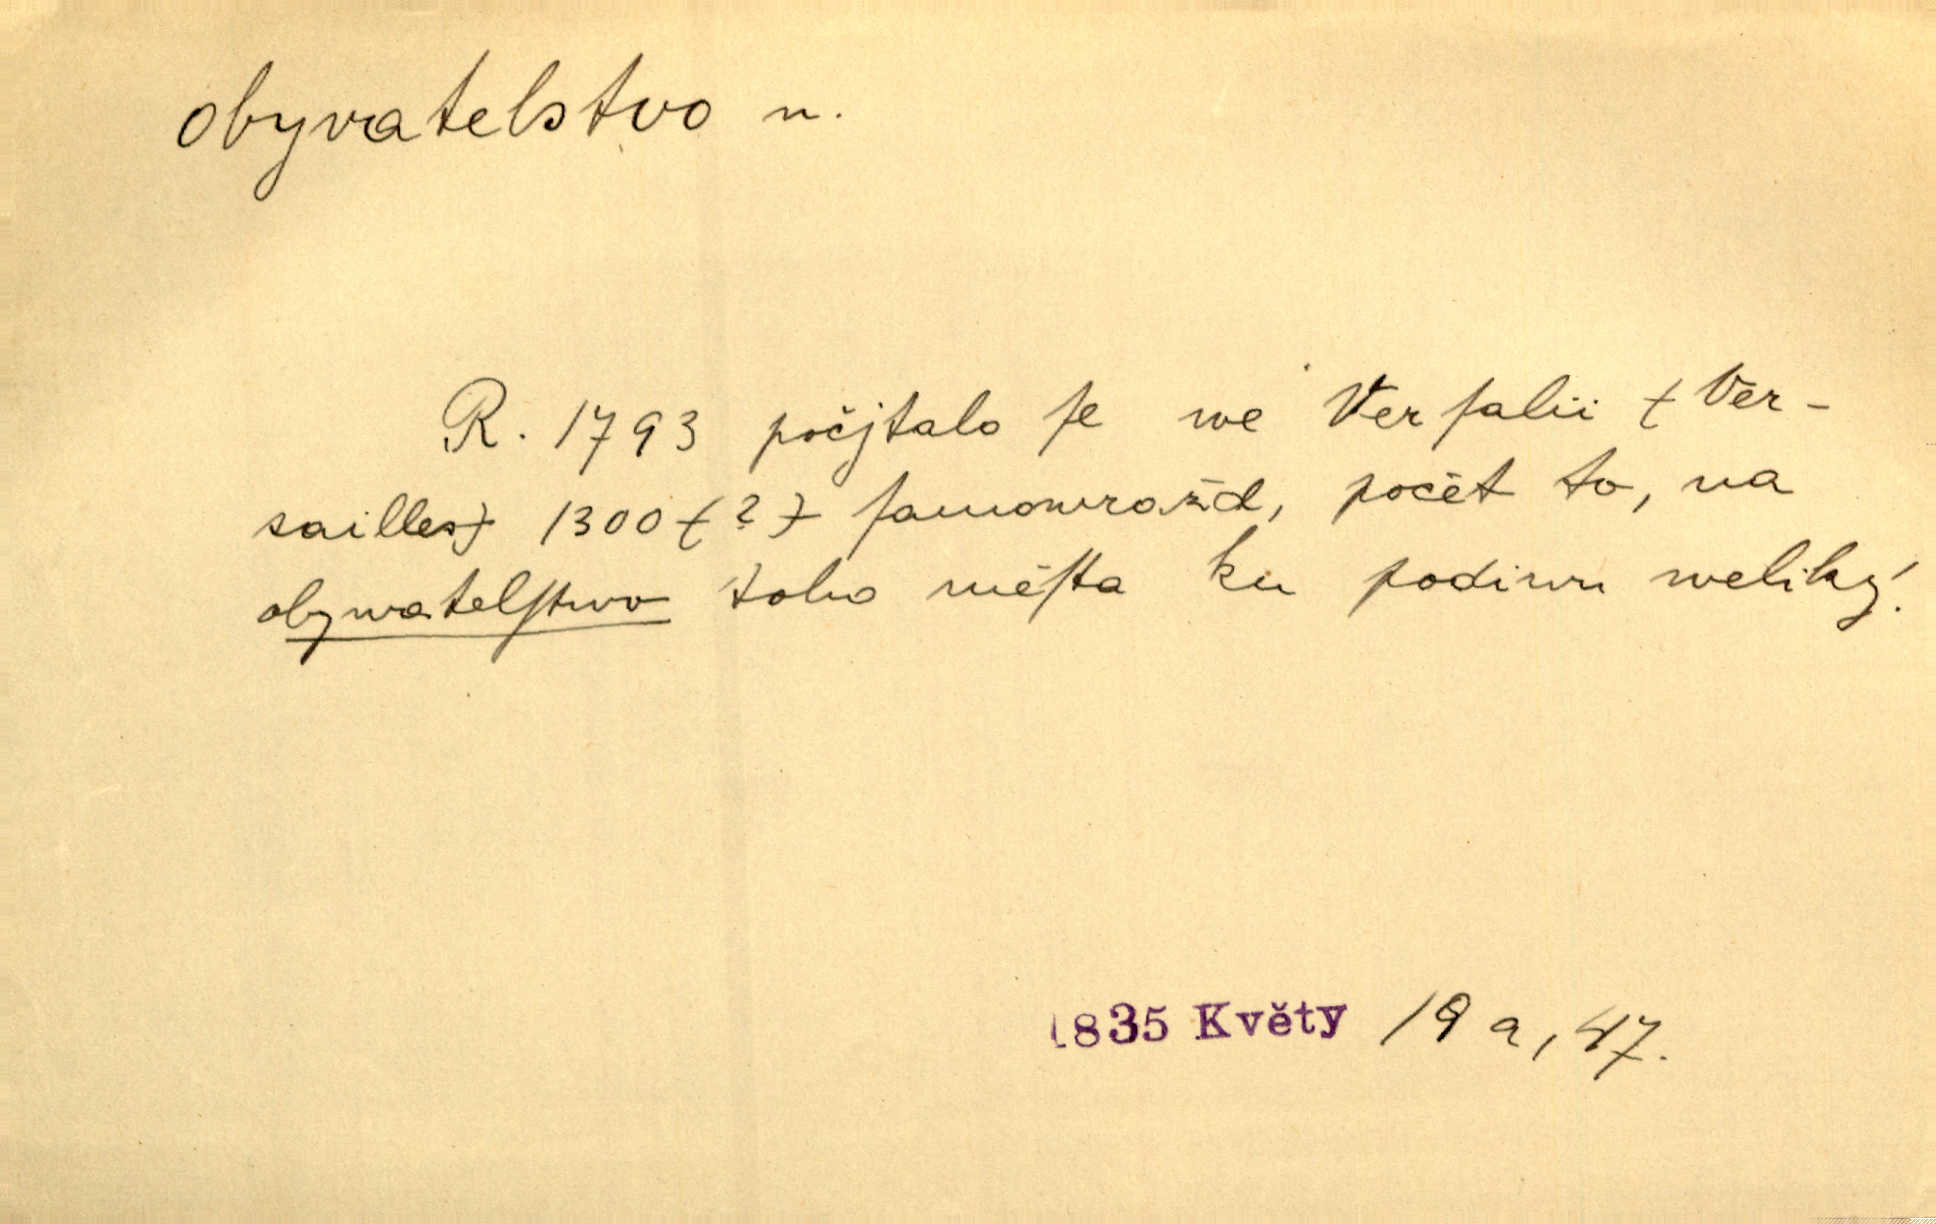 obyvatelstvo n.
R. 1793 počjtalo ſe we Verſalii (Ver-
sailles) 1300 (?) ſamowražd, počet to, na
obywatelſtwo toho měſta ku podiwu weliký!
1835 Květy 19a, 47.